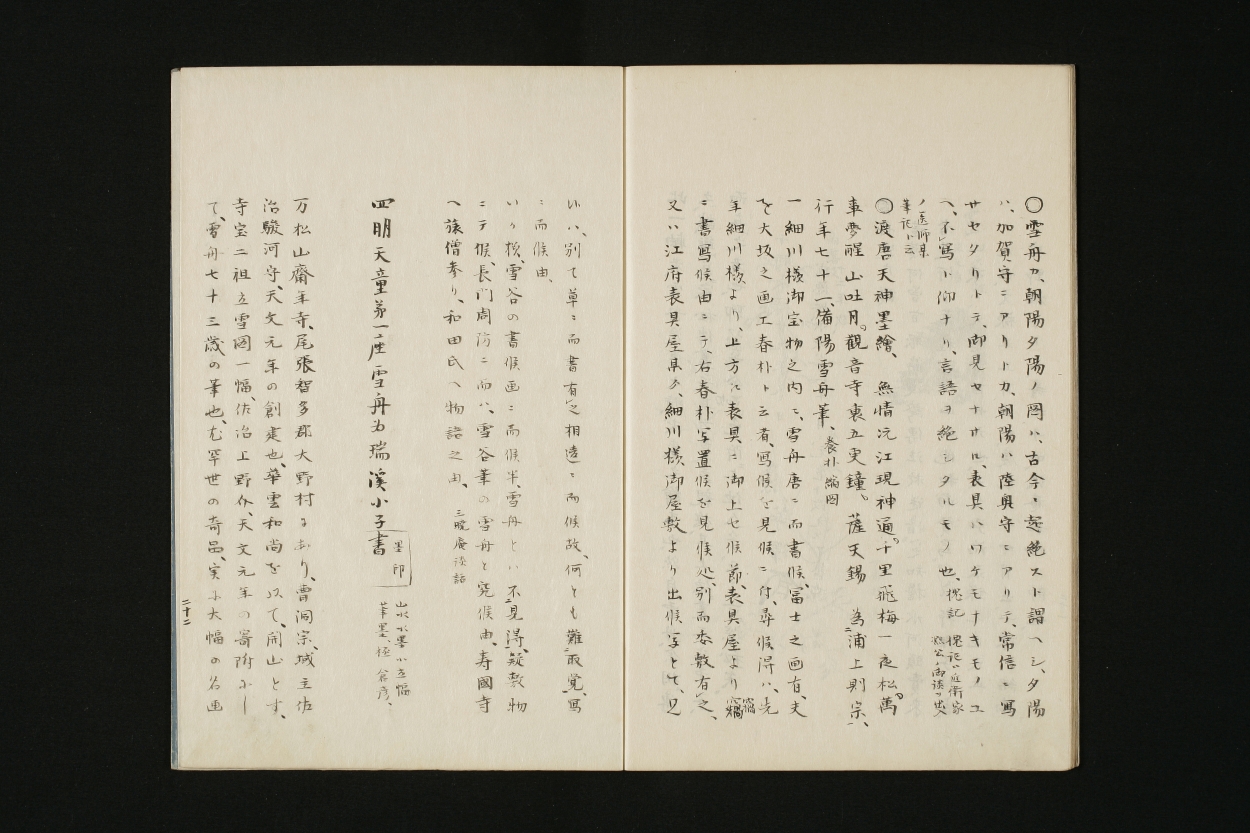 〇雪舟カ、朝陽夕陽ノ図ハ、古今ニ超絶スト謂ヘシ、夕陽
ハ、加賀守ニアリトカ、朝陽ハ陸奥守ニアリテ、常信ニ写
サセタリトテ、御見セナサル、表具ハワケモナキモノユ
ヘ、不写ト仰ナリ、言語ヲ絶シタルモノ也、槐記
槐記ハ近衛家
熙公ノ御談ヲ
ノ医師某
筆記ト云
〇渡唐天神墨絵、無情沅江現神通、十里飛梅一夜松、万
車夢醒山吐月、観音寺裏五更鐘、薩天錫 為浦上則宗、
行年七十一、備陽雪舟筆、養朴縮図
一細川様御宝物之内ニ、雪舟唐ニ而書候、冨士之画有、夫
を大坂之画工春朴ト云者、写候を見候ニ付、尋候得ハ、先
年細川様より、上方に表具ニ御上セ候節、表具屋より窃
ニ書写候由ニテ、右春朴写置候を見候処、別而委敷有之、
又ハ江府表具屋
細川様御屋敷より出候写とて、見
いハ、別て草ニ而書有之相違ニ而候故、何とも難取覚、写
ニ而候由、
いり核、雪谷の書候画ニ而候半、雪舟とハ不見得、疑敷物
ニテ候、長門周防ニ而ハ、雪谷筆の雪舟と究候由、寿国寺
へ旅僧参り、和田氏へ物語之由、三暁庵談話
四明天童第一座雪舟為瑞溪小子書
墨印
山水水墨小立幅
筆墨、極
万松山斎年寺、尾張智多郡大野村にあり、曹洞宗、城主佐
治駿河守、天文元年の創建也、華雲和尚を以て、開山とす、
寺宝ニ二祖立雪図一幅、佐治上野介、天文元年の寄附にし
て、雪舟七十三歳の筆也、尤罕世の奇品、実に大幅の名画
二十二